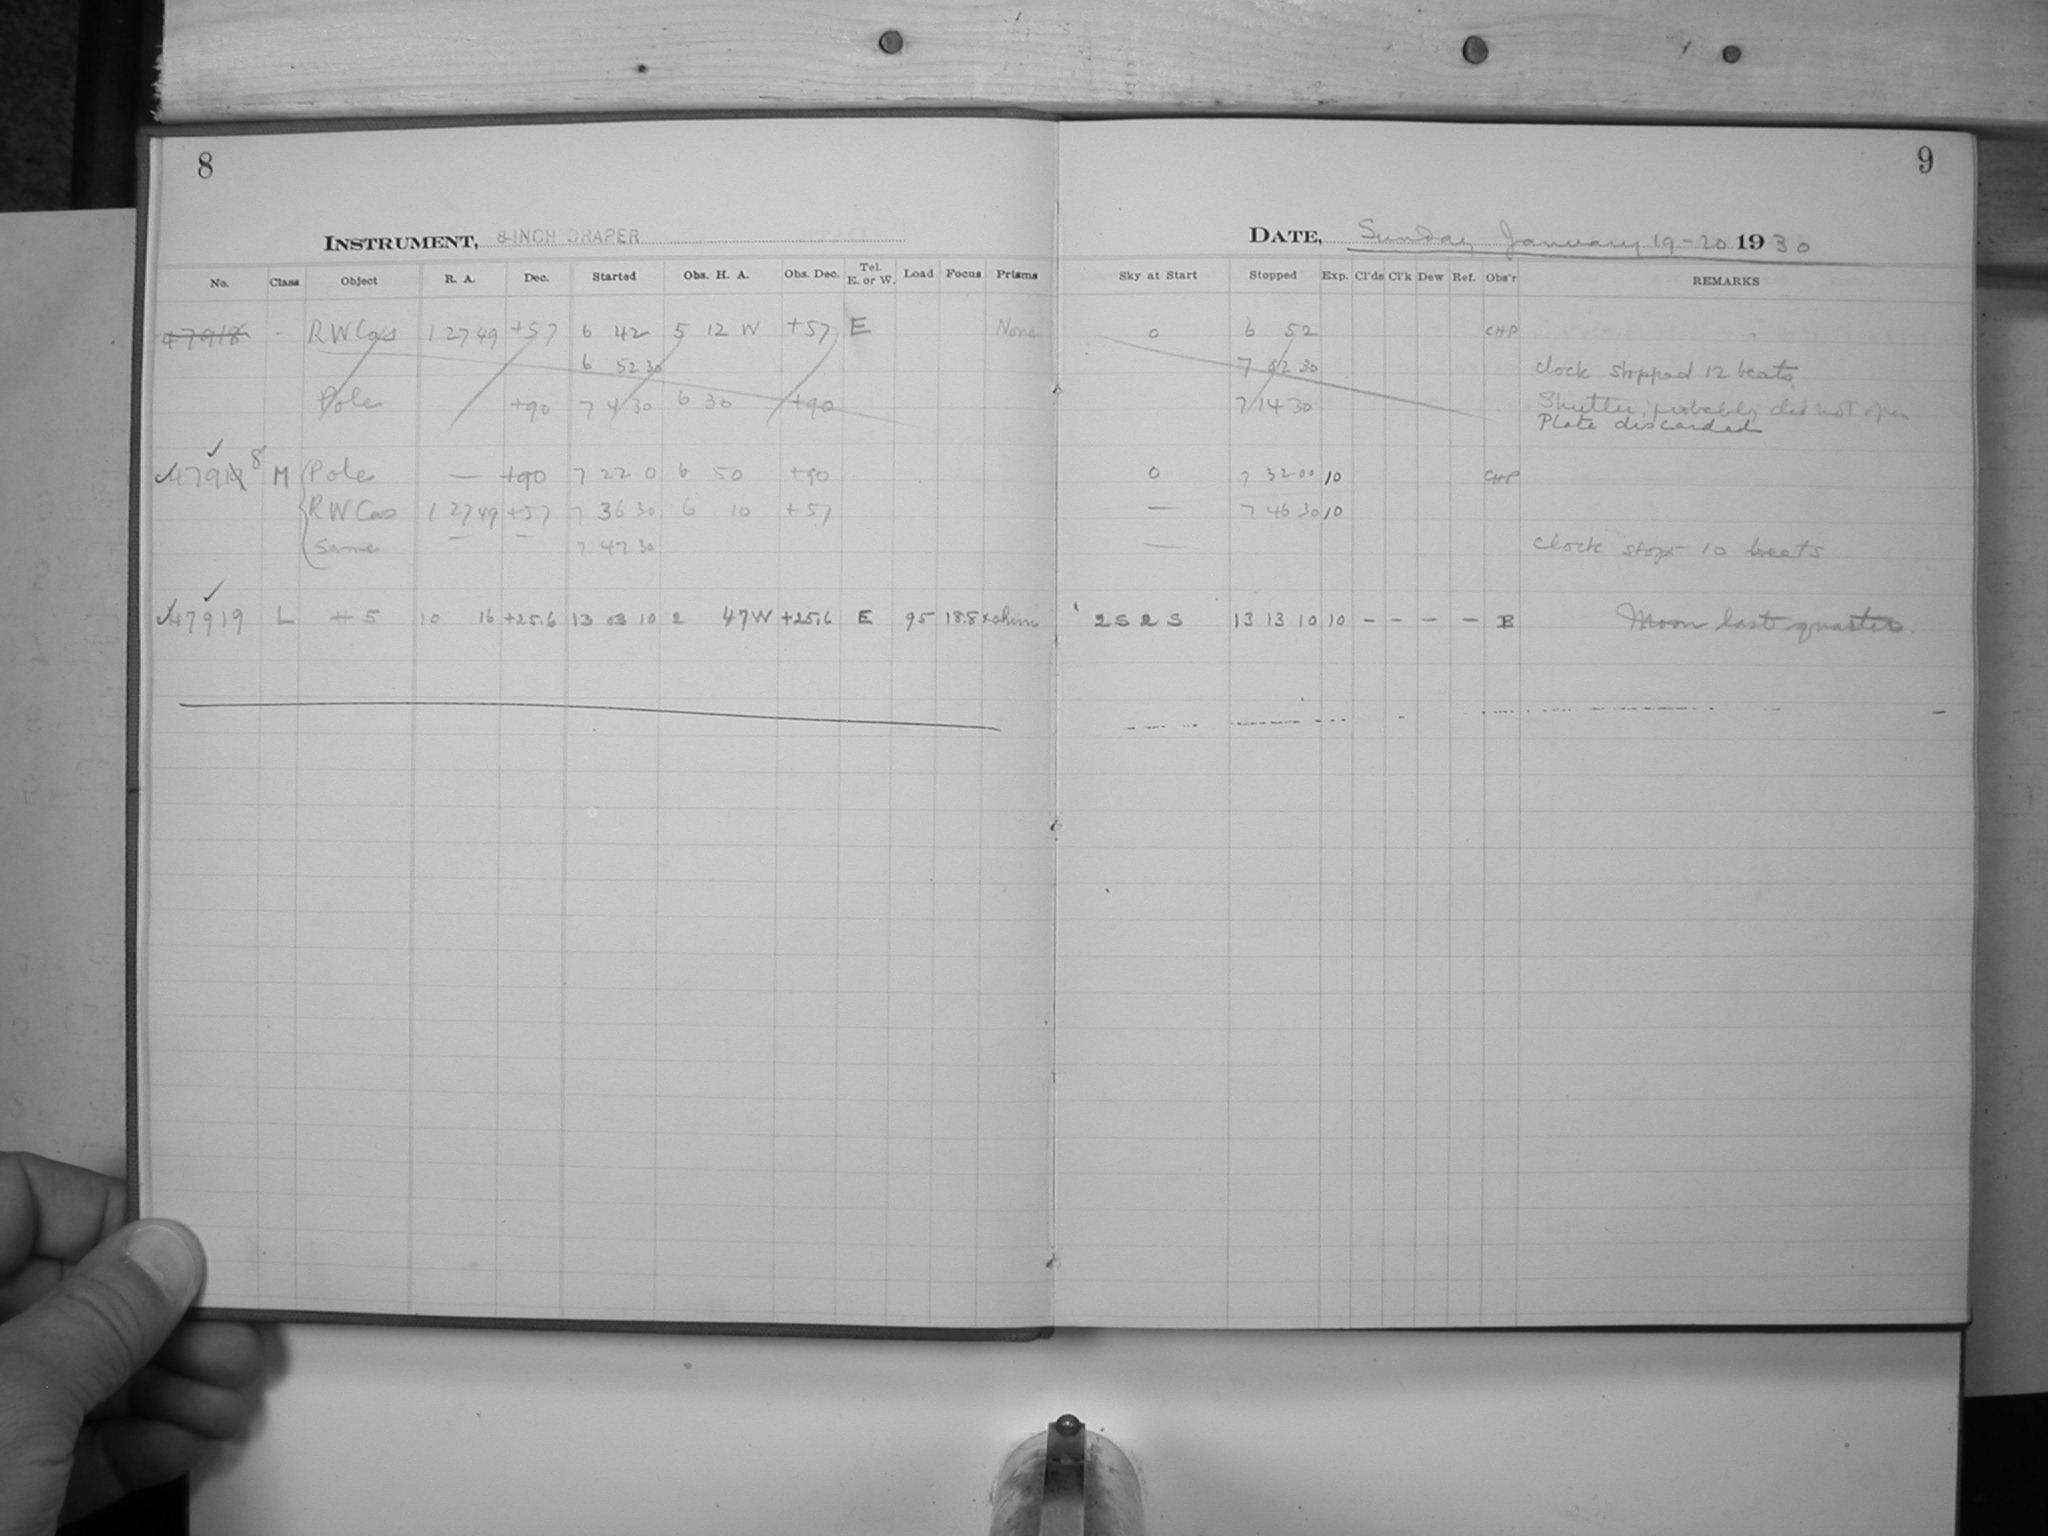 8
INSTRUMENT, 8-INCH DRAPER
No. Class Object R. A. Dec. Started Obs. H. A. Obs. Dec. Tel. E. or W. Load Focus Prisms
47918 - RW Cas 1 27 49 +57 6 42 5 12 W +57 E None
6 52 30
Pole +90 7 4 30 6 30 +90
47918 M Pole — +90 7 22 0 6 50 +90
RW Cas 1 27 49 +57 7 36 30 6 10 +57
Same — — 7 47 30
47919 L # 5 10 16 +25.6 13 03 10 2 47 W +25.6 E 95 18.8
9
DATE, Sunday January 19-20 1930
Sky at Start Stopped Exp. Cl'ds Cl'k Dew Ref. Obs'r REMARKS
0 6 52 CHP
7 02 30 Clock stopped 12 beats
7 14 30 Shutter probably did not open
Plate discarded
0 7 32 00 10 CHP
— 7 46 30 10
— Clock stops 10 beats
2 S 2 S 13 13 10 10 - - - - B Moon last quarter.